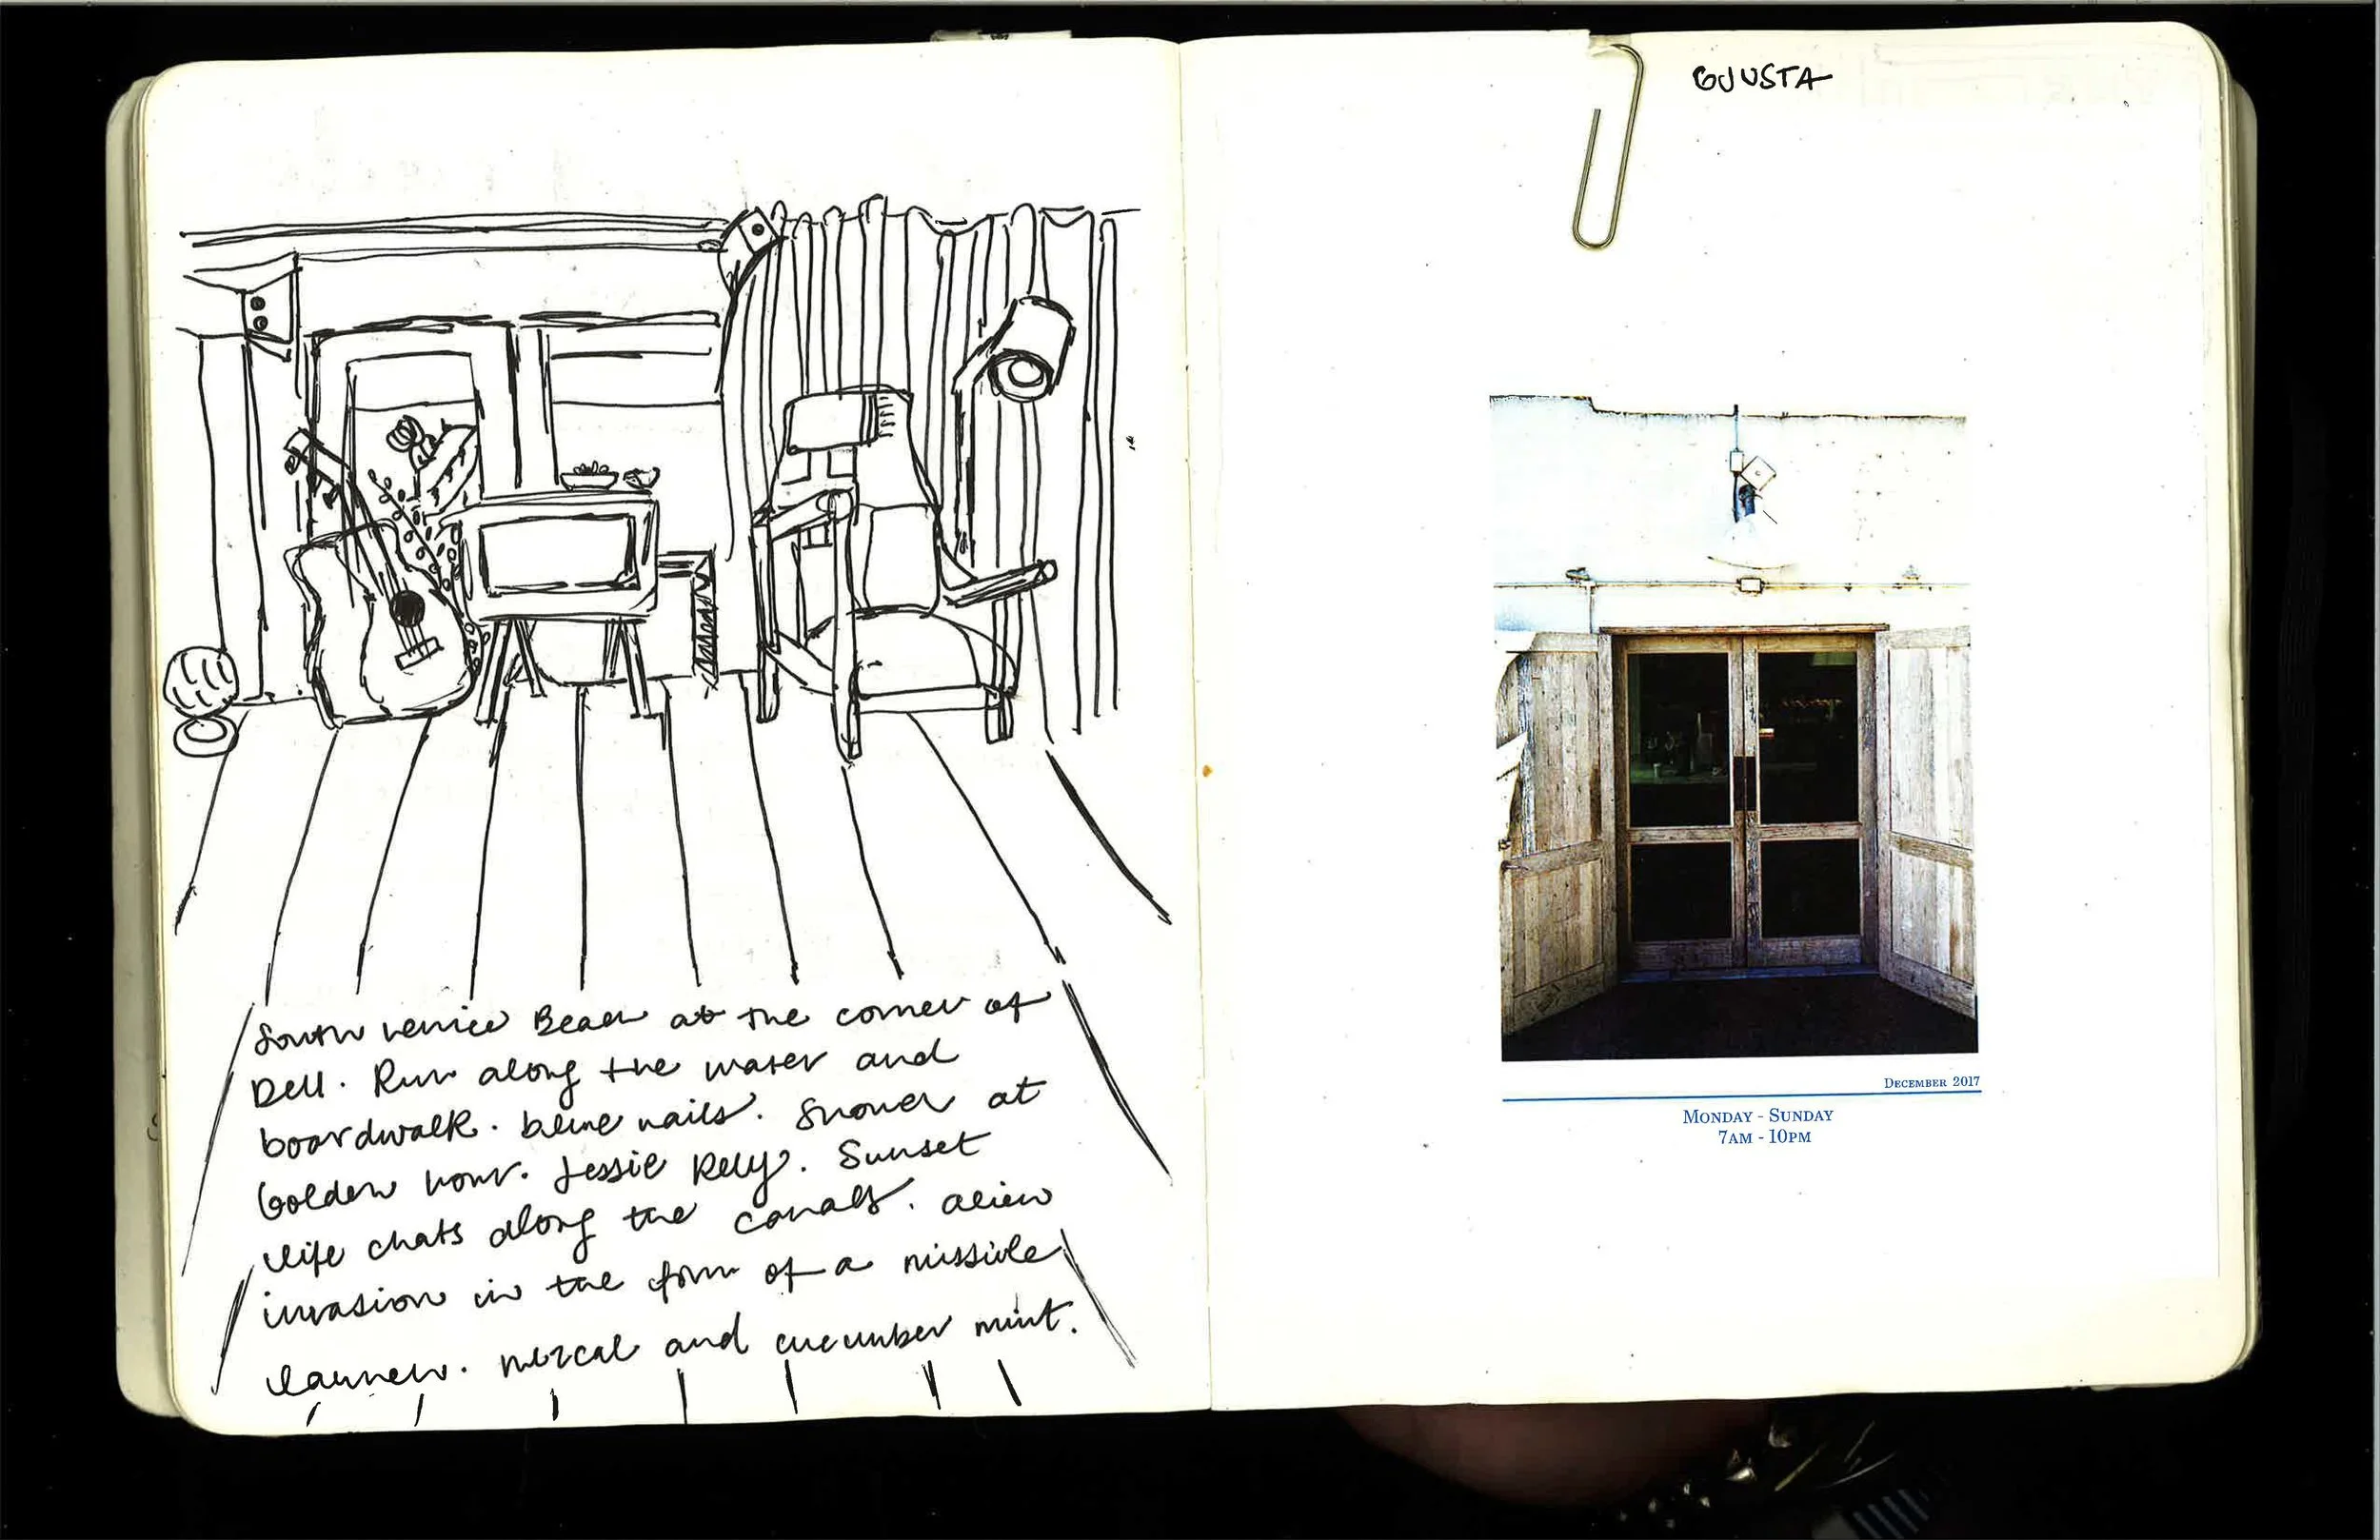 South Venice Beach at the corner of
Dell. Run along the water and
boardwalk. blue nails. Shower at
Golden hour. Jessie Rely. Sunset
life chats along the canals. alien
invasion in the form of a missile
launch. mezcal and cucumber mint.
GJUSTA
DECEMBER 2017
MONDAY - SUNDAY
7AM - 10PM